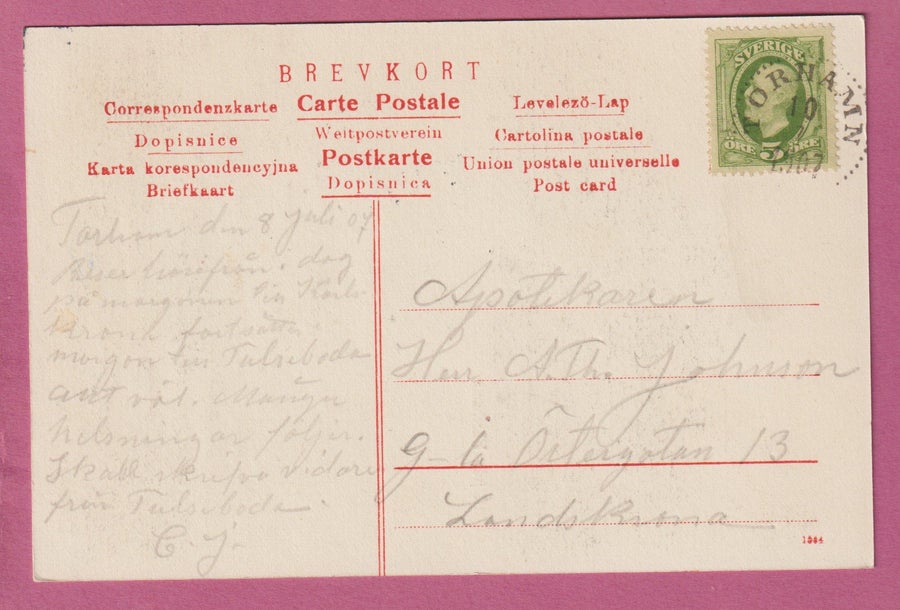 BREVKORT
Correspondenzkarte
Carte Postale
Levelező-Lap
Dopisnice
Weltpostverein
Cartolina postale
Karta korespondencyjna
Postkarte
Union postale universelle
Briefkaart
Dopisnica
Post card
SVERIGE
ÖRE 5 ÖRE
TORHAMN
10
7
1907
Torhamn den 8 juli 07
Reser härifrån i dag
på morgonen till Karls-
krona fortsätter i
morgon till Tulseboda
allt väl. Många
helsningar följer.
Skall skrifva vidare
från Tulseboda.
C. J.
Apotekaren
Herr A. Th. Johnson
G-la Östergatan 13
Landskrona
1584